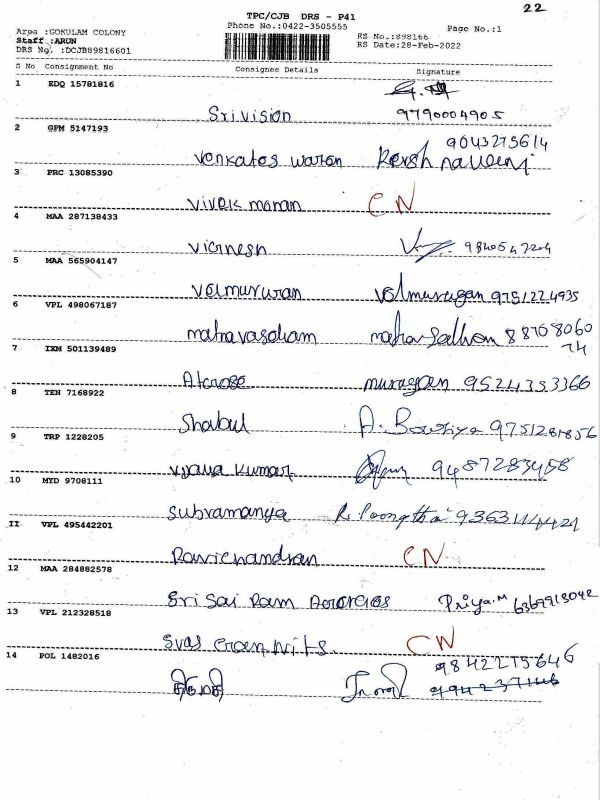 22
TPC/CJB DRS - P41
Phone No.:0422-3505555
Page No.:1
Area :GOKULAM COLONY
Staff :ARUN
RS No.:898166
DRS No. :DCJB89816601
RS Date:28-Feb-2022
S No Consignment No Consignee Details Signature
1 EDQ 15781816
Srivision 9790004905
2 GPM 5147193
9043275614
Venkates waran
3 PRC 13085390
Vivek maran CN
4 MAA 287138433
Viegnesh 9840547204
5 MAA 565904147
Velmururan Velmurugan 9751224935
6 VPL 498067187
mathavasoham 88708060
74
7 IXM 501139489
murugan 9524353366
8 TEN 7168922
Shabul A. Bowshiya 9751281856
9 TRP 1228205
vijaya kumar 9487283458
10 MYD 9708111
Subramanya
11 VPL 495442201
Ravichandran CN
12 MAA 284882578
Sri Sai Ram Priya.M 6369913042
13 VPL 212328518
CN
14 POL 1482016
9842215646